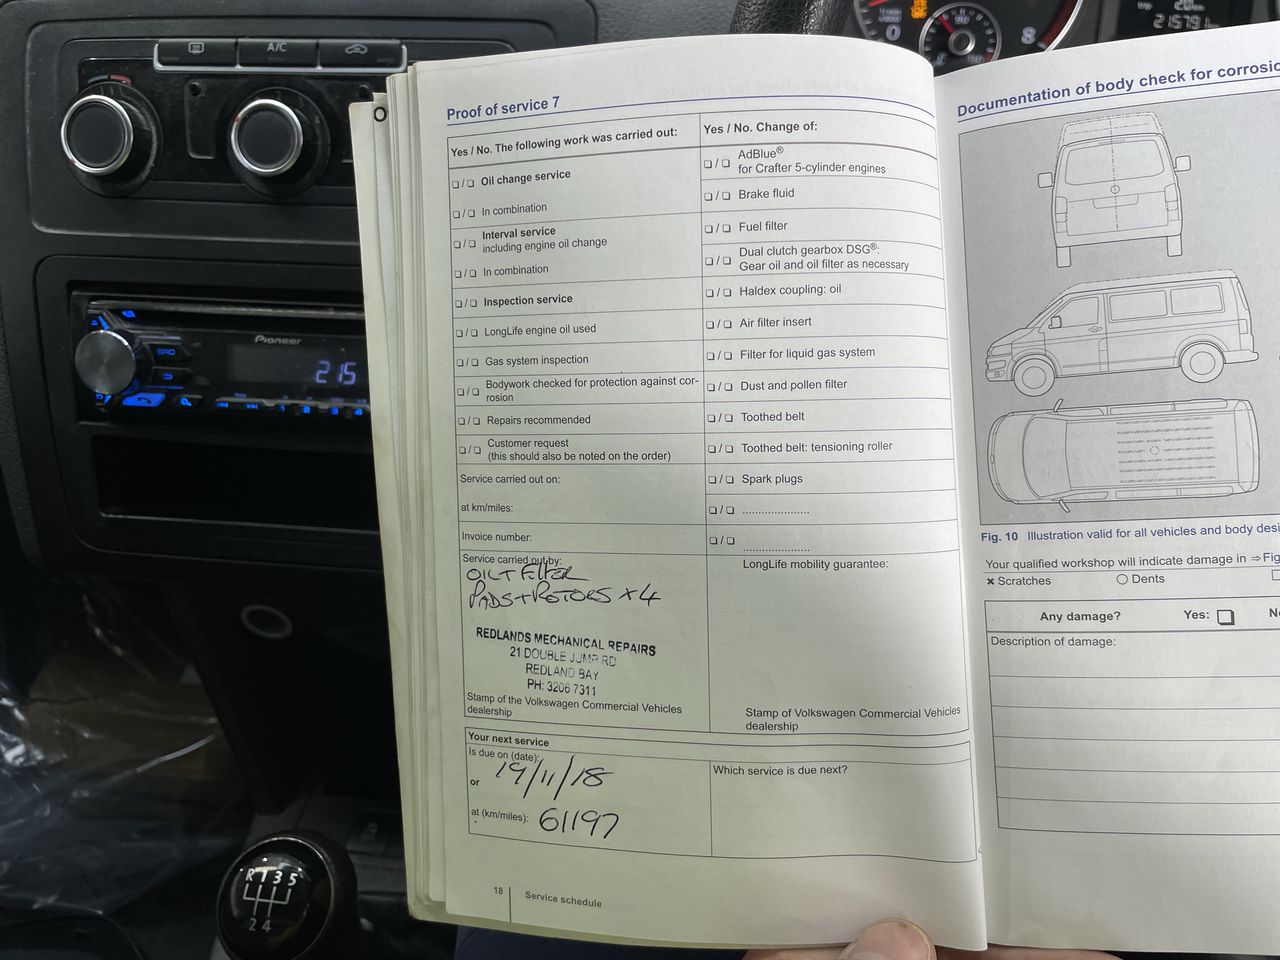 A/C
Pioneer
SRC
215
R 1 3 5
2 4
0
8
21579
Proof of service 7
Yes / No. The following work was carried out:
❑ / ❑ Oil change service
❑ / ❑ In combination
❑ / ❑ Interval service
including engine oil change
❑ / ❑ In combination
❑ / ❑ Inspection service
❑ / ❑ LongLife engine oil used
❑ / ❑ Gas system inspection
❑ / ❑ Bodywork checked for protection against cor-
rosion
❑ / ❑ Repairs recommended
❑ / ❑ Customer request
(this should also be noted on the order)
Service carried out on:
at km/miles:
Invoice number:
Service carried out by:
OIL + FILTER
PADS + ROTORS x 4
REDLANDS MECHANICAL REPAIRS
21 DOUBLE JUMP RD
REDLAND BAY
PH: 3206 7311
Stamp of the Volkswagen Commercial Vehicles
dealership
Yes / No. Change of:
❑ / ❑ AdBlue®
for Crafter 5-cylinder engines
❑ / ❑ Brake fluid
❑ / ❑ Fuel filter
❑ / ❑ Dual clutch gearbox DSG®:
Gear oil and oil filter as necessary
❑ / ❑ Haldex coupling: oil
❑ / ❑ Air filter insert
❑ / ❑ Filter for liquid gas system
❑ / ❑ Dust and pollen filter
❑ / ❑ Toothed belt
❑ / ❑ Toothed belt: tensioning roller
❑ / ❑ Spark plugs
❑ / ❑ .....................
❑ / ❑ .....................
LongLife mobility guarantee:
Stamp of Volkswagen Commercial Vehicles
dealership
Your next service
Is due on (date):
19/11/18
or
at (km/miles): 61197
Which service is due next?
18 Service schedule
Documentation of body check for corrosio
Fig. 10 Illustration valid for all vehicles and body desi
Your qualified workshop will indicate damage in ⇒ Fig
× Scratches ○ Dents
Any damage? Yes: ❑ N
Description of damage: